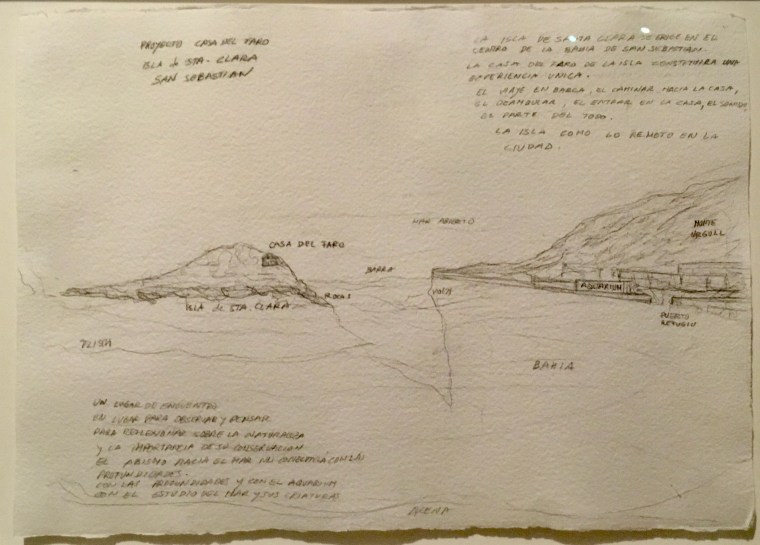 PROYECTO CASA DEL FARO
ISLA de STA. CLARA
SAN SEBASTIAN
LA ISLA DE SANTA CLARA SE ERIGE EN EL
CENTRO DE LA BAHIA DE SAN SEBASTIAN.
LA CASA DEL FARO DE LA ISLA CONSTITUIRA UNA
EXPERIENCIA UNICA.
EL VIAJE EN BARCA, EL CAMINAR HACIA LA CASA,
EL DEAMBULAR, EL ENTRAR EN LA CASA, EL SONIDO,
ES PARTE DEL TODO.
LA ISLA COMO LO REMOTO EN LA
CIUDAD.
MAR ABIERTO
MONTE
URGULL
CASA DEL FARO
BARRA
AQUARIUM
ROCAS
ISLA de STA. CLARA
PUERTO
REFUGIO
BAHIA
UN LUGAR DE ENCUENTRO
UN LUGAR PARA OBSERVAR Y PENSAR
PARA REFLEXIONAR SOBRE LA NATURALEZA
Y LA IMPORTANCIA DE SU CONSERVACION
EL ABISMO HACIA EL MAR NOS CON LAS
PROFUNDIDADES.
CON LAS PROFUNDIDADES Y CON EL AQUARIUM
CON EL ESTUDIO DEL MAR Y SUS CRIATURAS
ARENA